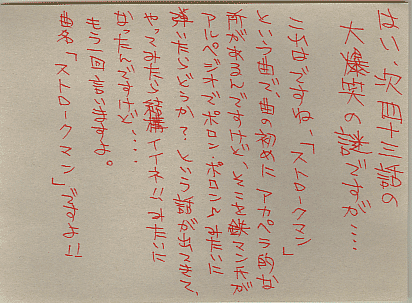 はい、次四十三話の
大爆笑の談ですが‥‥
こチはですね、「ストロークマン」
という曲で、曲の初めにアカペラ的な
所があるんですけど、そこを鉄マン氏が
アルペジオでポロン・ポロンみたいに
弾いたらどうか？という話が出てきて、
やってみたら結構イイネ!!みたいに
なったんですけど、‥‥
もう一回言いますよ。
曲名「ストロークマン」ですよ!!